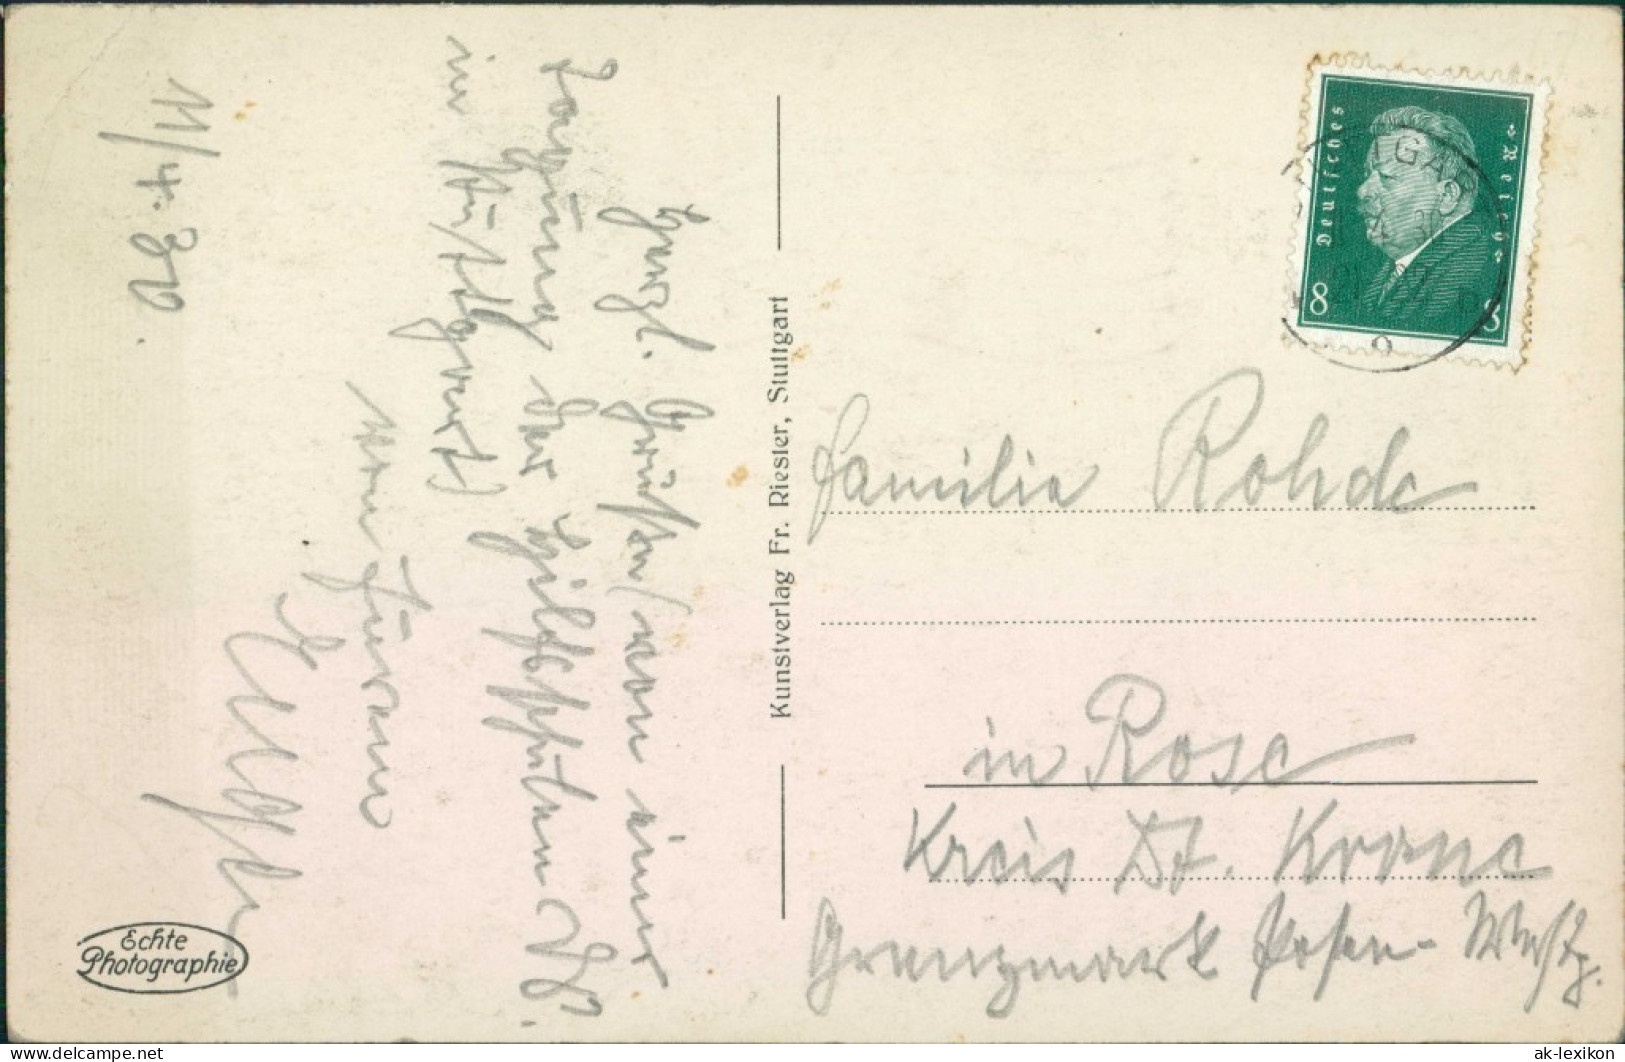 11/4. 30.
Herzl. Grüßen von einer
Tagung der
in Stuttgart
von Euerem
Kunstverlag Fr. Riesler, Stuttgart
Echte
Photographie
Deutsches Reich
8 8
Familie Rohde
in Rose
Kreis Dt. Krone
Grenzmark Posen-Westpr.
ak-lexikon